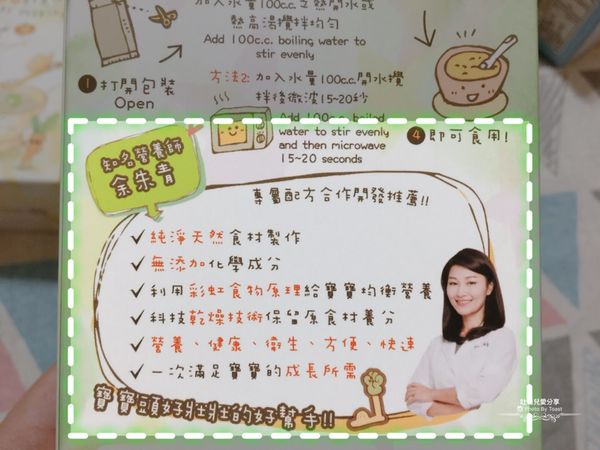 加入水量100c.c.之熱開水或
熱高湯攪拌均勻
Add 100c.c. boiling water to
stir evenly
❶打開包裝
Open
方法2: 加入水量100c.c.開水攪
拌後微波15~20秒
Add 100c.c. boiled
water to stir evenly
and then microwave
15~20 seconds
❹即可食用!
知名營養師
余朱青
專屬配方合作開發推薦!!
✓純淨天然食材製作
✓無添加化學成分
✓利用彩虹食物原理給寶寶均衡營養
✓科技乾燥技術保留原食材養分
✓營養、健康、衛生、方便、快速
✓一次滿足寶寶的成長所需
寶寶頭好壯壯的好幫手!!
Photo By Toast